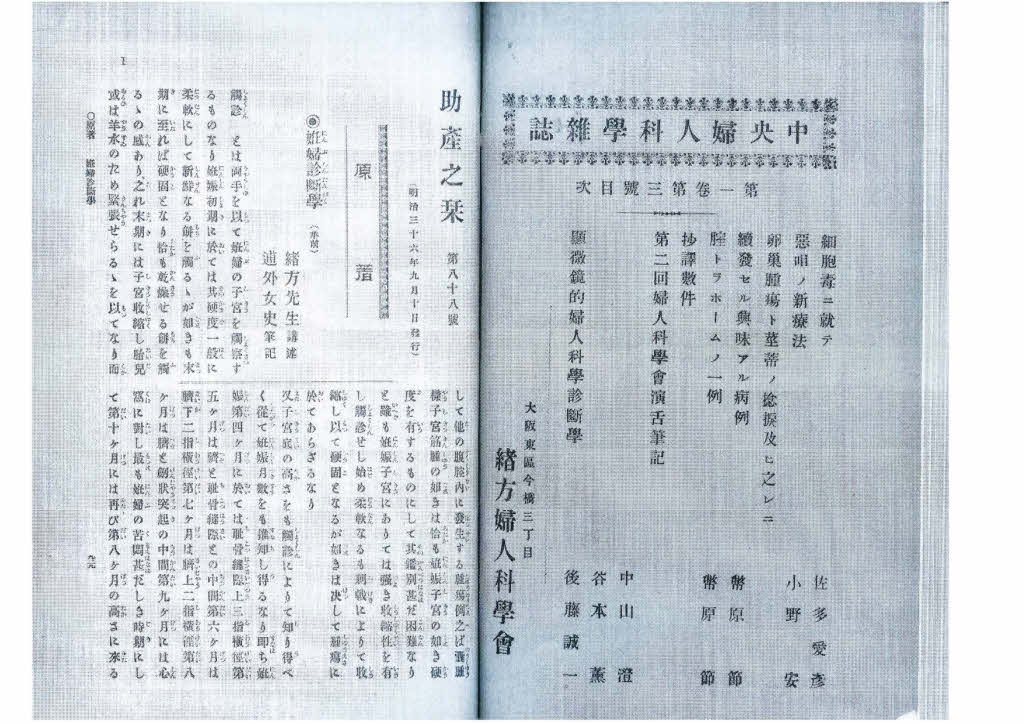 中央婦人科學雜誌
第一卷第三號目次
細胞毒ニ就テ
佐多愛彥
惡咀ノ新療法
小野 安
卵巢腫瘍ト莖蒂ノ捻捩及ヒ之レニ
續發セル興味アル病例
幣原 節
腟トラホームノ一例
幣原 節
抄譯數件
第二回婦人科學會演舌筆記
中山 澄
谷本 薰
顯微鏡的婦人科學診斷學
後藤誠一
大阪東區今橋三丁目
緒方婦人科學會
助產之栞 第八十八號
(明治三十六年九月十日發行)
原著
◉姙婦診斷學 (承前)
緒方先生 講述
道外女史 筆記
觸診 とは両手を以て姙婦の子宮を觸察す
るものなり姙娠初期に於ては其硬度一般に
柔軟にして新鮮なる餅を觸るゝが如きも末
期に至れば硬固となり恰も乾燥せる餅を觸
るゝの感あり之れ末期には子宮收縮し胎兒
或は羊水のため緊張せらるゝを以てなり而
して他の腹腔內に發生する腫瘍例之ば囊腫
樣子宮筋腫の如きは恰も姙娠子宮の如き硬
度を有するものにして其鑑別甚だ困難なり
と雖も姙娠子宮にありては强き收縮性を有
し觸診せし始め柔軟なるも刺戟によりて收
縮し以て硬固となるが如きは决して腫瘍に
於てあらざるなり
又子宮底の高さをも觸診によりて知り得べ
く從て姙娠月數をも推知し得るなり即ち姙
娠第四ヶ月に於ては耻骨縫際上三指橫徑第
五ヶ月は臍と耻骨縫際との中間第六ヶ月は
臍下二指橫徑第七ヶ月は臍上二指橫徑第八
ヶ月は臍と劒狀突起の中間第九ヶ月には心
窩に對し最も姙婦の苦悶甚だしき時期にし
て第十ヶ月には再び第八ヶ月の高さに來る
〇原著 姙婦診斷學
1